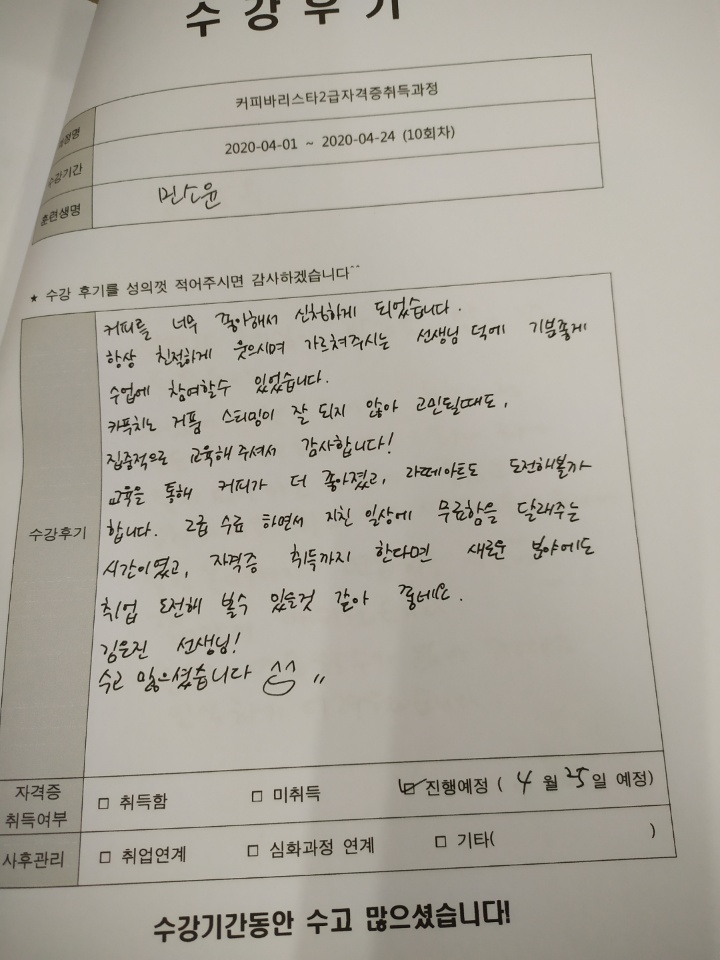 수 강 후 기
과정명 커피바리스타2급자격증취득과정
수강기간 2020-04-01 ~ 2020-04-24 (10회차)
훈련생명 민소윤
★ 수강 후기를 성의껏 적어주시면 감사하겠습니다^^
수강후기
커피를 너무 좋아해서 신청하게 되었습니다.
항상 친절하게 웃으시며 가르쳐주시는 선생님 덕에 기분좋게
수업에 참여할수 있었습니다.
카푸치노 거품 스티밍이 잘 되지 않아 고민될때도,
집중적으로 교육해 주셔서 감사합니다!
교육을 통해 커피가 더 좋아졌고, 라떼아트도 도전해볼까
합니다. 2급 수료 하면서 지친 일상에 무료함을 달래주는
시간이였고, 자격증 취득까지 한다면 새로운 분야에도
취업 도전해 볼수 있을것 같아 좋네요.
김은진 선생님!
수고 많으셨습니다 ^^ "
자격증 취득여부 □ 취득함 □ 미취득 ☑ 진행예정 ( 4 월 25 일 예정)
사후관리 □ 취업연계 □ 심화과정 연계 □ 기타( )
수강기간동안 수고 많으셨습니다!